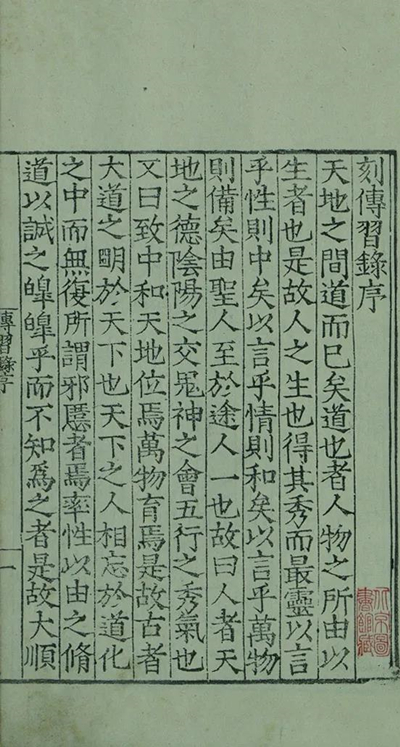 刻傳習錄序
天地之間道而已矣道也者人物之所由以
生者也是故人之生也得其秀而最靈以言
乎性則中矣以言乎情則和矣以言乎萬物
則備矣由聖人至於途人一也故曰人者天
地之德陰陽之交鬼神之會五行之秀氣也
又曰致中和天地位焉萬物育焉是故古者
大道之明於天下也天下之人相忘於道化
之中而無復所謂邪慝者焉率性以由之脩
道以誠之皞皞乎而不知爲之者是故大順
傳習錄序
一
北京圖
書館藏